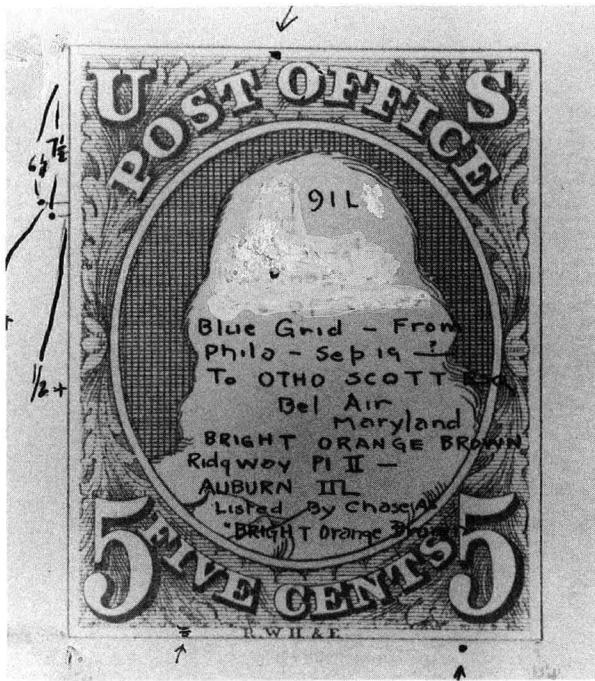 U S
POST OFFICE
6½ 7½
91L
Blue Grid - From
Phila - Sep 19 - ?
To OTHO SCOTT Esq
½ +
Bel Air
Maryland
BRIGHT ORANGE BROWN
Ridgway Pl II -
AUBURN IIL
Listed By Chase As
"BRIGHT Orange Brown
5 FIVE CENTS 5
R.W.H.& E.